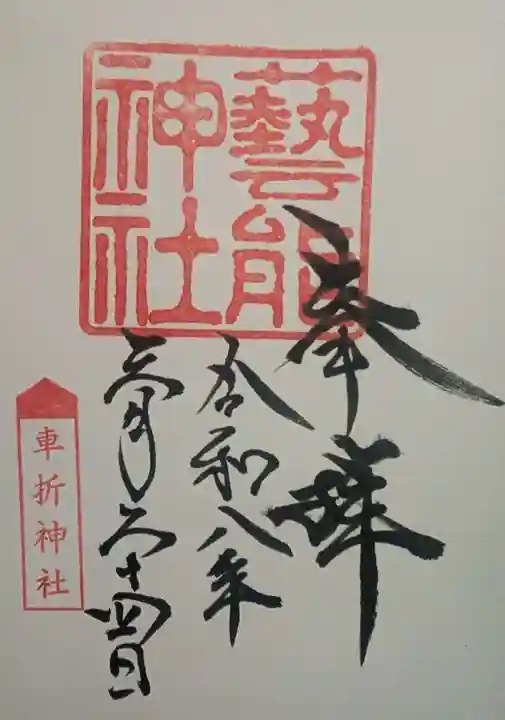 奉拝
藝能
神社
令和八年
三月二十四日
車折神社